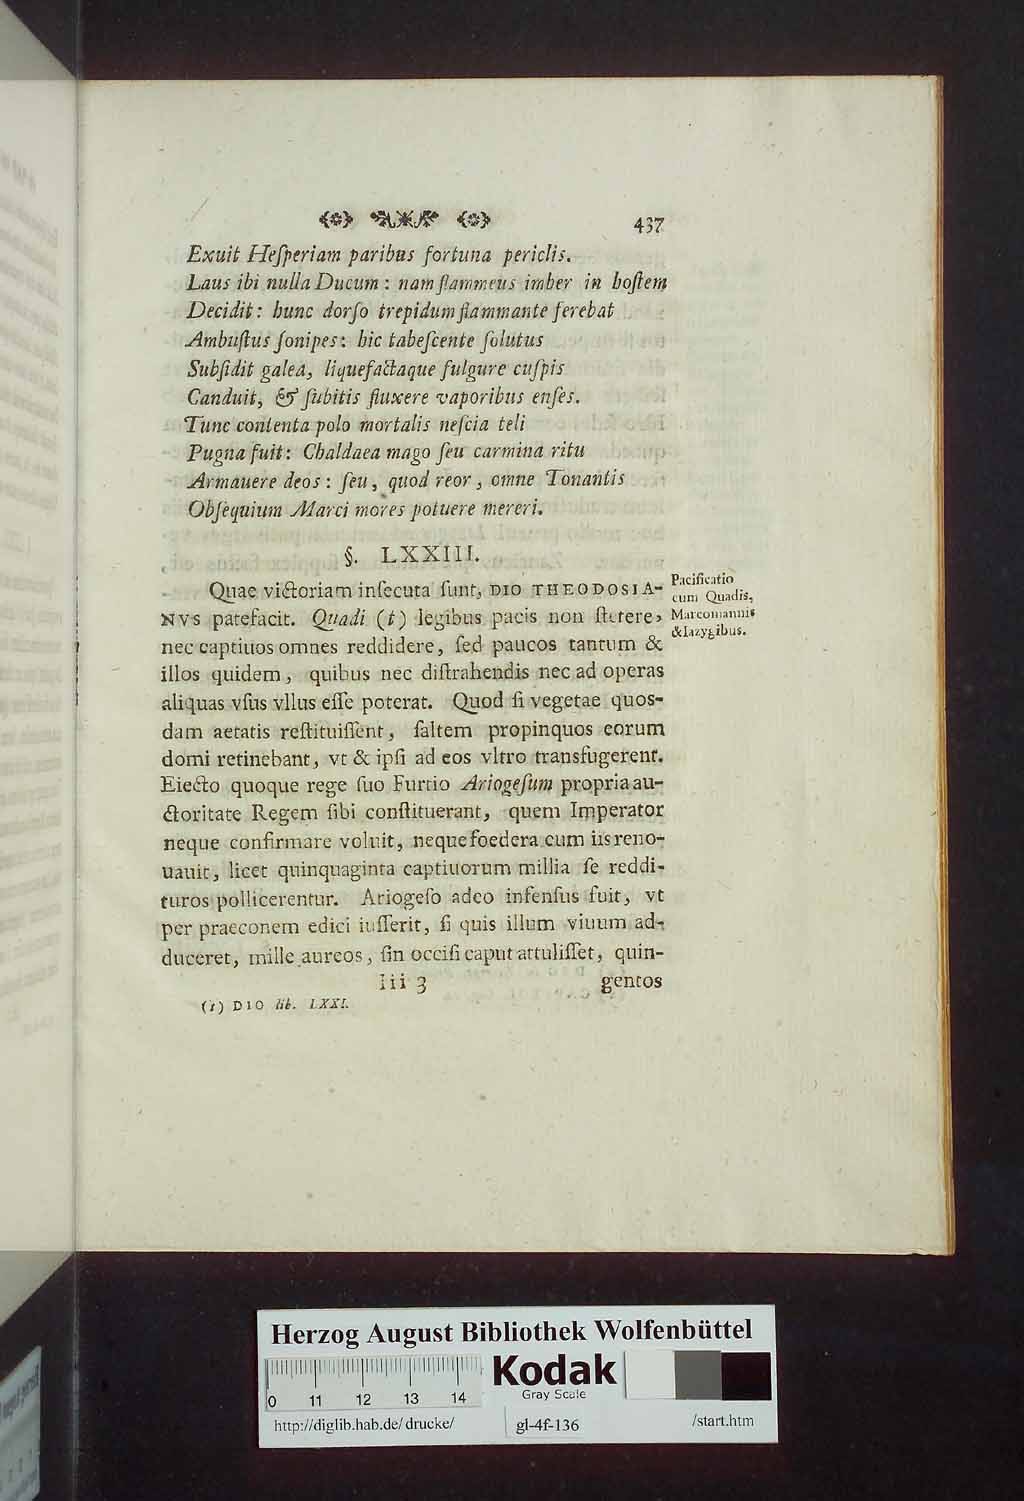 437
Exuit Heſperiam paribus fortuna periclis.
Laus ibi nulla Ducum: nam flammeus imber in hoſtem
Decidit: hunc dorſo trepidum flammante ferebat
Ambuſtus ſonipes: hic tabeſcente ſolutus
Subſidit galea, liquefactaque fulgure cuſpis
Canduit, & ſubitis fluxere vaporibus enſes.
Tunc contenta polo mortalis neſcia teli
Pugna fuit: Chaldaea mago ſeu carmina ritu
Armauere deos: ſeu, quod reor, omne Tonantis
Obſequium Marci mores potuere mereri.
§. LXXIII.
Quae victoriam inſecuta ſunt, DIO THEODOSIA-
NVS patefacit. Quadi (t) legibus pacis non ſtetere,
nec captiuos omnes reddidere, ſed paucos tantum &
illos quidem, quibus nec diſtrahendis nec ad operas
aliquas vſus vllus eſſe poterat. Quod ſi vegetae quos-
dam aetatis reſtituiſſent, ſaltem propinquos eorum
domi retinebant, vt & ipſi ad eos vltro transfugerent.
Eiecto quoque rege ſuo Furtio Ariogeſum propria au-
ctoritate Regem ſibi conſtituerant, quem Imperator
neque confirmare voluit, neque foedera cum iis reno-
uauit, licet quinquaginta captiuorum millia ſe reddi-
turos pollicerentur. Ariogeſo adeo infenſus fuit, vt
per praeconem edici iuſſerit, ſi quis illum viuum ad-
duceret, mille aureos, ſin occiſi caput attuliſſet, quin-
Iii 3 gentos
(t) DIO lib. LXXI.
Pacificatio
cum Quadis,
Marcomannis
& Iazygibus.
Herzog August Bibliothek Wolfenbüttel
Kodak
Gray Scale
0 11 12 13 14
http://diglib.hab.de/drucke/ gl-4f-136 /start.htm